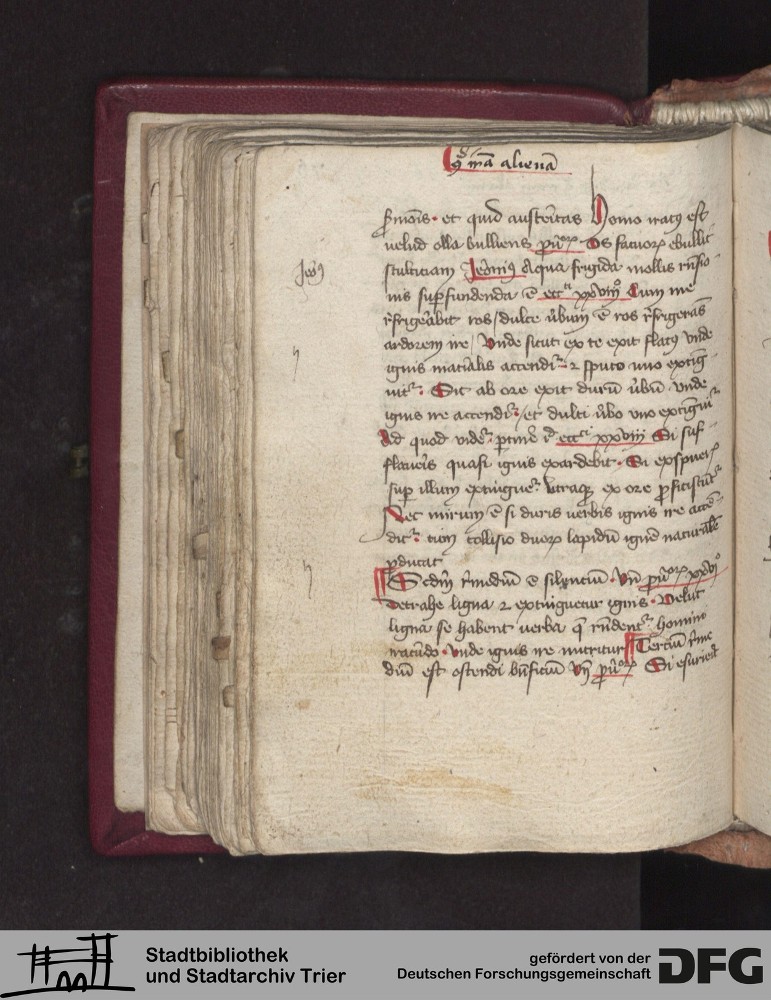 9ͣ iȓa aliena
sermois · et quid austeritas Homo iratus est
velud olla bulliens puorum Os fatuorum ebullit
stulticiam Jeronimus Aqua frigida mollis rñsio
Jero9
nis superfundenda ē eccͥ xxviijͦ Cum me
rͤfrigerabit ros / dulce ubum ē ros rͤfrigerās
ardorem ire / Vnde sicut ex te exit flatus vnde
ignis matialis accendit͛ ⁊ sputo uno exting
uit͛ · Sic ab ore exit durū ubū vnde
ignis ire accendit͛ / et dulci ubo vno extinguit͛
Ad quod videt͛ ptinē id eccͥ xxviij Si suf
flaueris quasi ignis exardebit · Si expueris
super illum extinguet͛ utraque ex ore proficiscūt͛
Nec mirum ē si duris uerbis ignis ire accē
dit͛ · cum collisio duorum lapidū ignē naturalē
producat
Scdm remediū ē silencium · Vñ puorum xxvjͦ
Detrahe ligna ⁊ extinguetur ignis · Velut
ligna se habent verba q̄ rñdent͛ homini
iracūdo · vnde ignis ire nutritur Tercium reme
dium est ostendi bñficium Vñ puorum Si esurierit
Stadtbibliothek
und Stadtarchiv Trier
gefördert von der
Deutschen Forschungsgemeinschaft
DFG